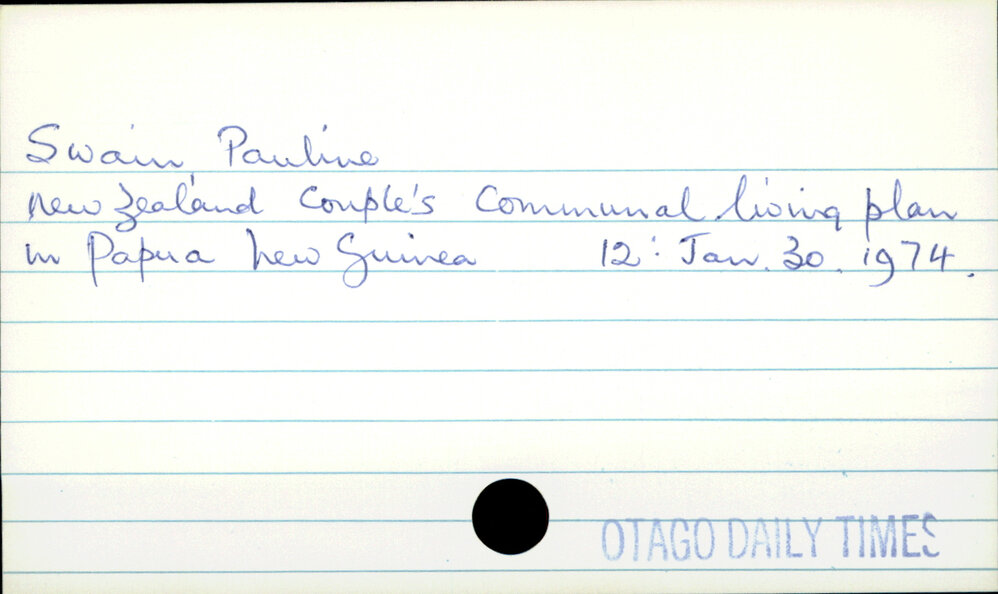 Swain Pauline
New Zealand Couple's Communal living plan
in Papua New Guinea 12: Jan. 30. 1974.
OTAGO DAILY TIMES